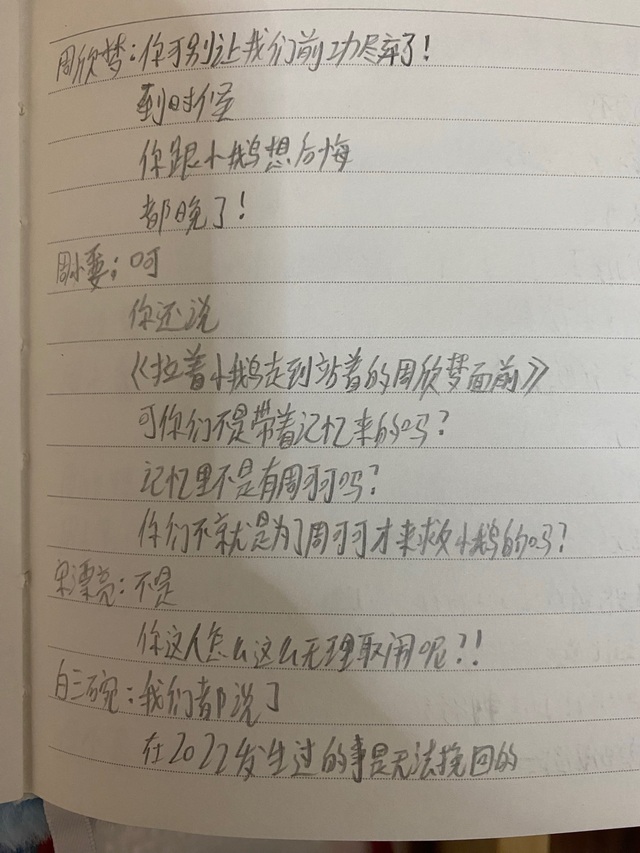 周欣梦：你可别让我们前功尽弃了！
到时候
你跟小鹅想后悔
都晚了！
周小要：呵
你还说
《拉着小鹅走到站着的周欣梦面前》
可你们不是带着记忆来的吗？
记忆里不是有周可可吗？
你们不就是为了周可可才来救小鹅的吗？
宋漂亮：不是
你这人怎么这么无理取闹呢？！
白三碗：我们都说了
在2022发生过的事是无法挽回的